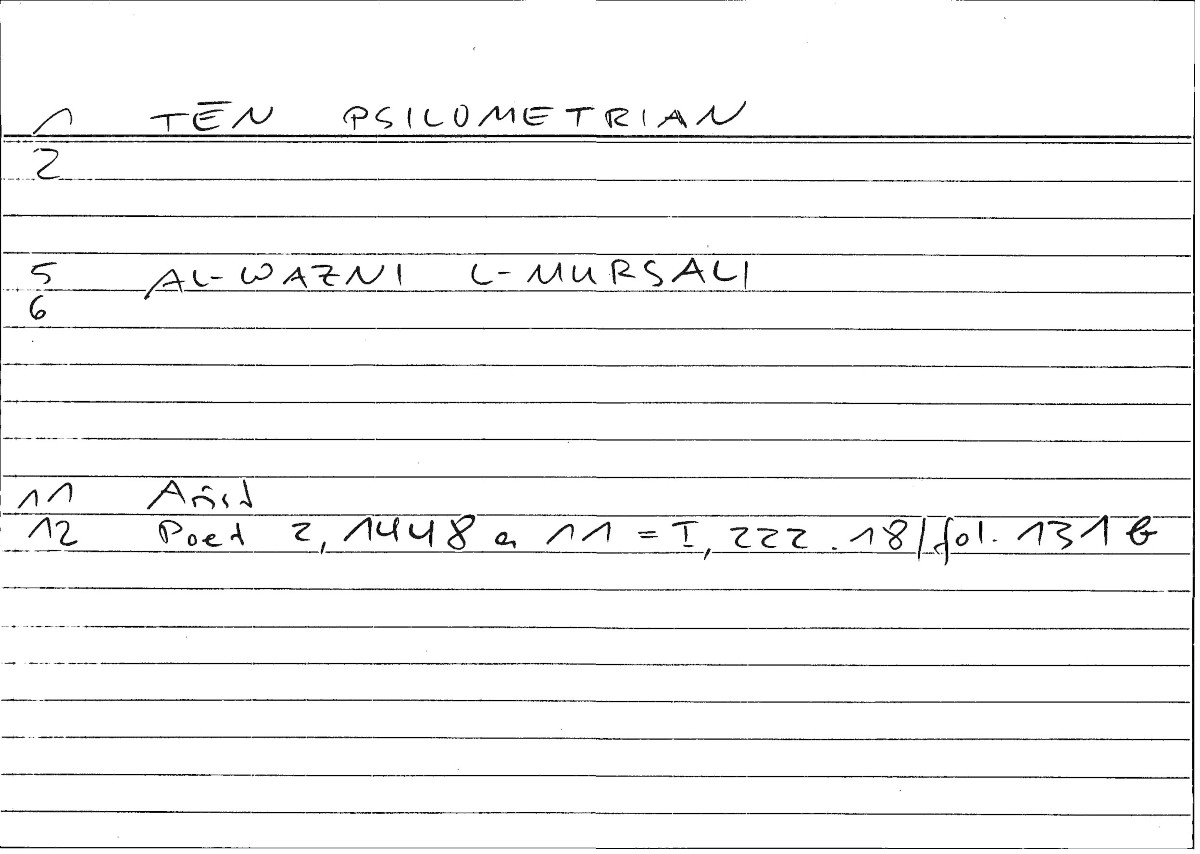 1 TĒN PSILOMETRIAN
2
5 AL-WAZNI L-MURSALI
6
11 Arist
12 Poet 2, 1448 a 11 = I, 222.18/fol. 131 b